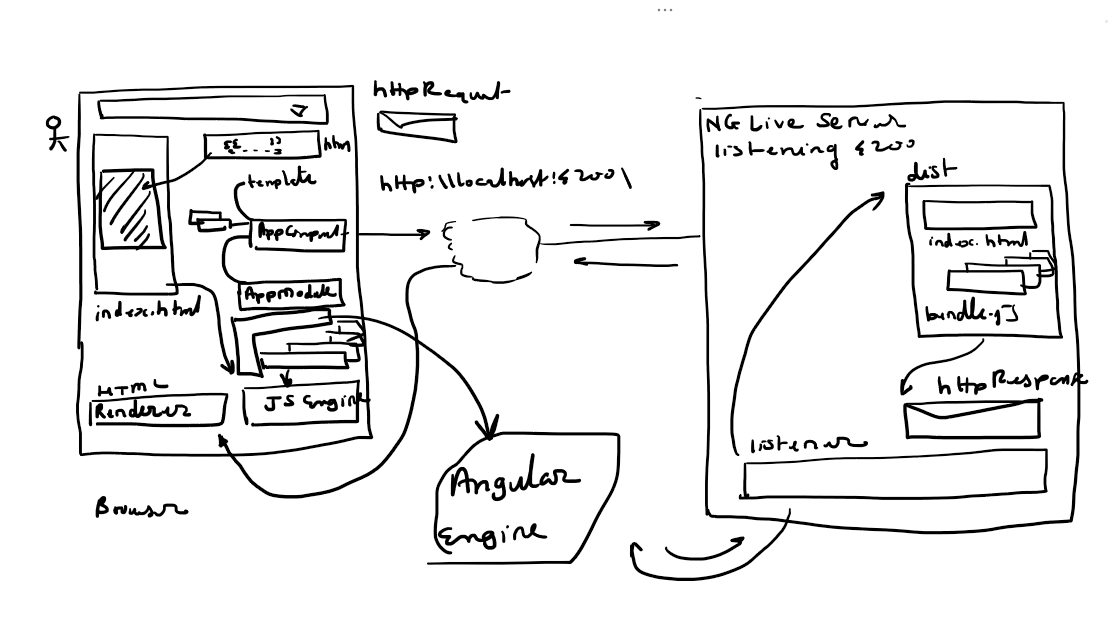 httpRequest
http:\\localhost:4200\
{{....}}
htm
template
AppComponent
AppModule
index.html
HTML
Renderer
JS Engine
Browser
Angular
Engine
NG Live Server
listening 4200
dist
index.html
bundle.js
httpResponse
listener